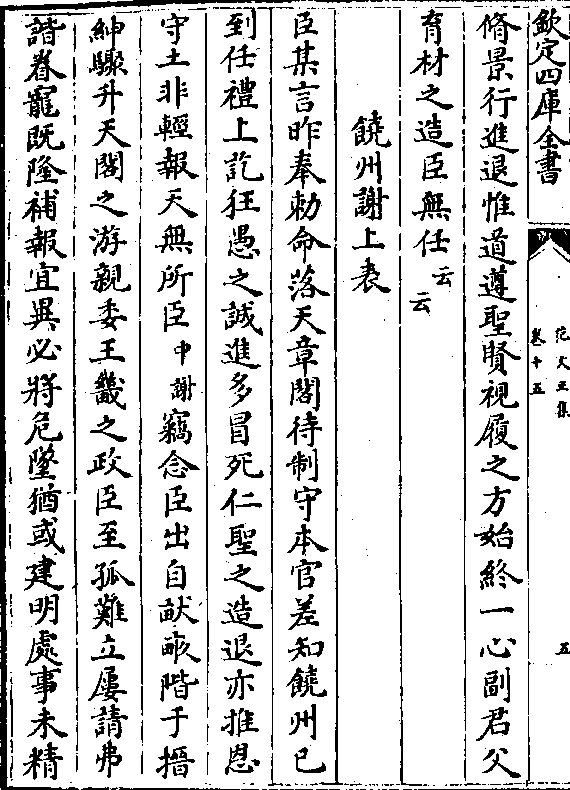 欽定四庫全書
范文正集
卷十五
五
脩景行進退惟道遵聖賢視履之方始終一心副君父
育材之造臣無任云云
饒州謝上表
臣某言昨奉勅命落天章閣待制守本官差知饒州已
到任禮上訖狂愚之誠進多冒死仁聖之造退亦推恩
守土非輕報天無所臣中謝竊念臣出自畎畝階于搢
紳驟升天閣之游親委王畿之政臣至孤難立屢請弗
諧眷寵既隆補報宜異必將危墜猶或建明處事未精